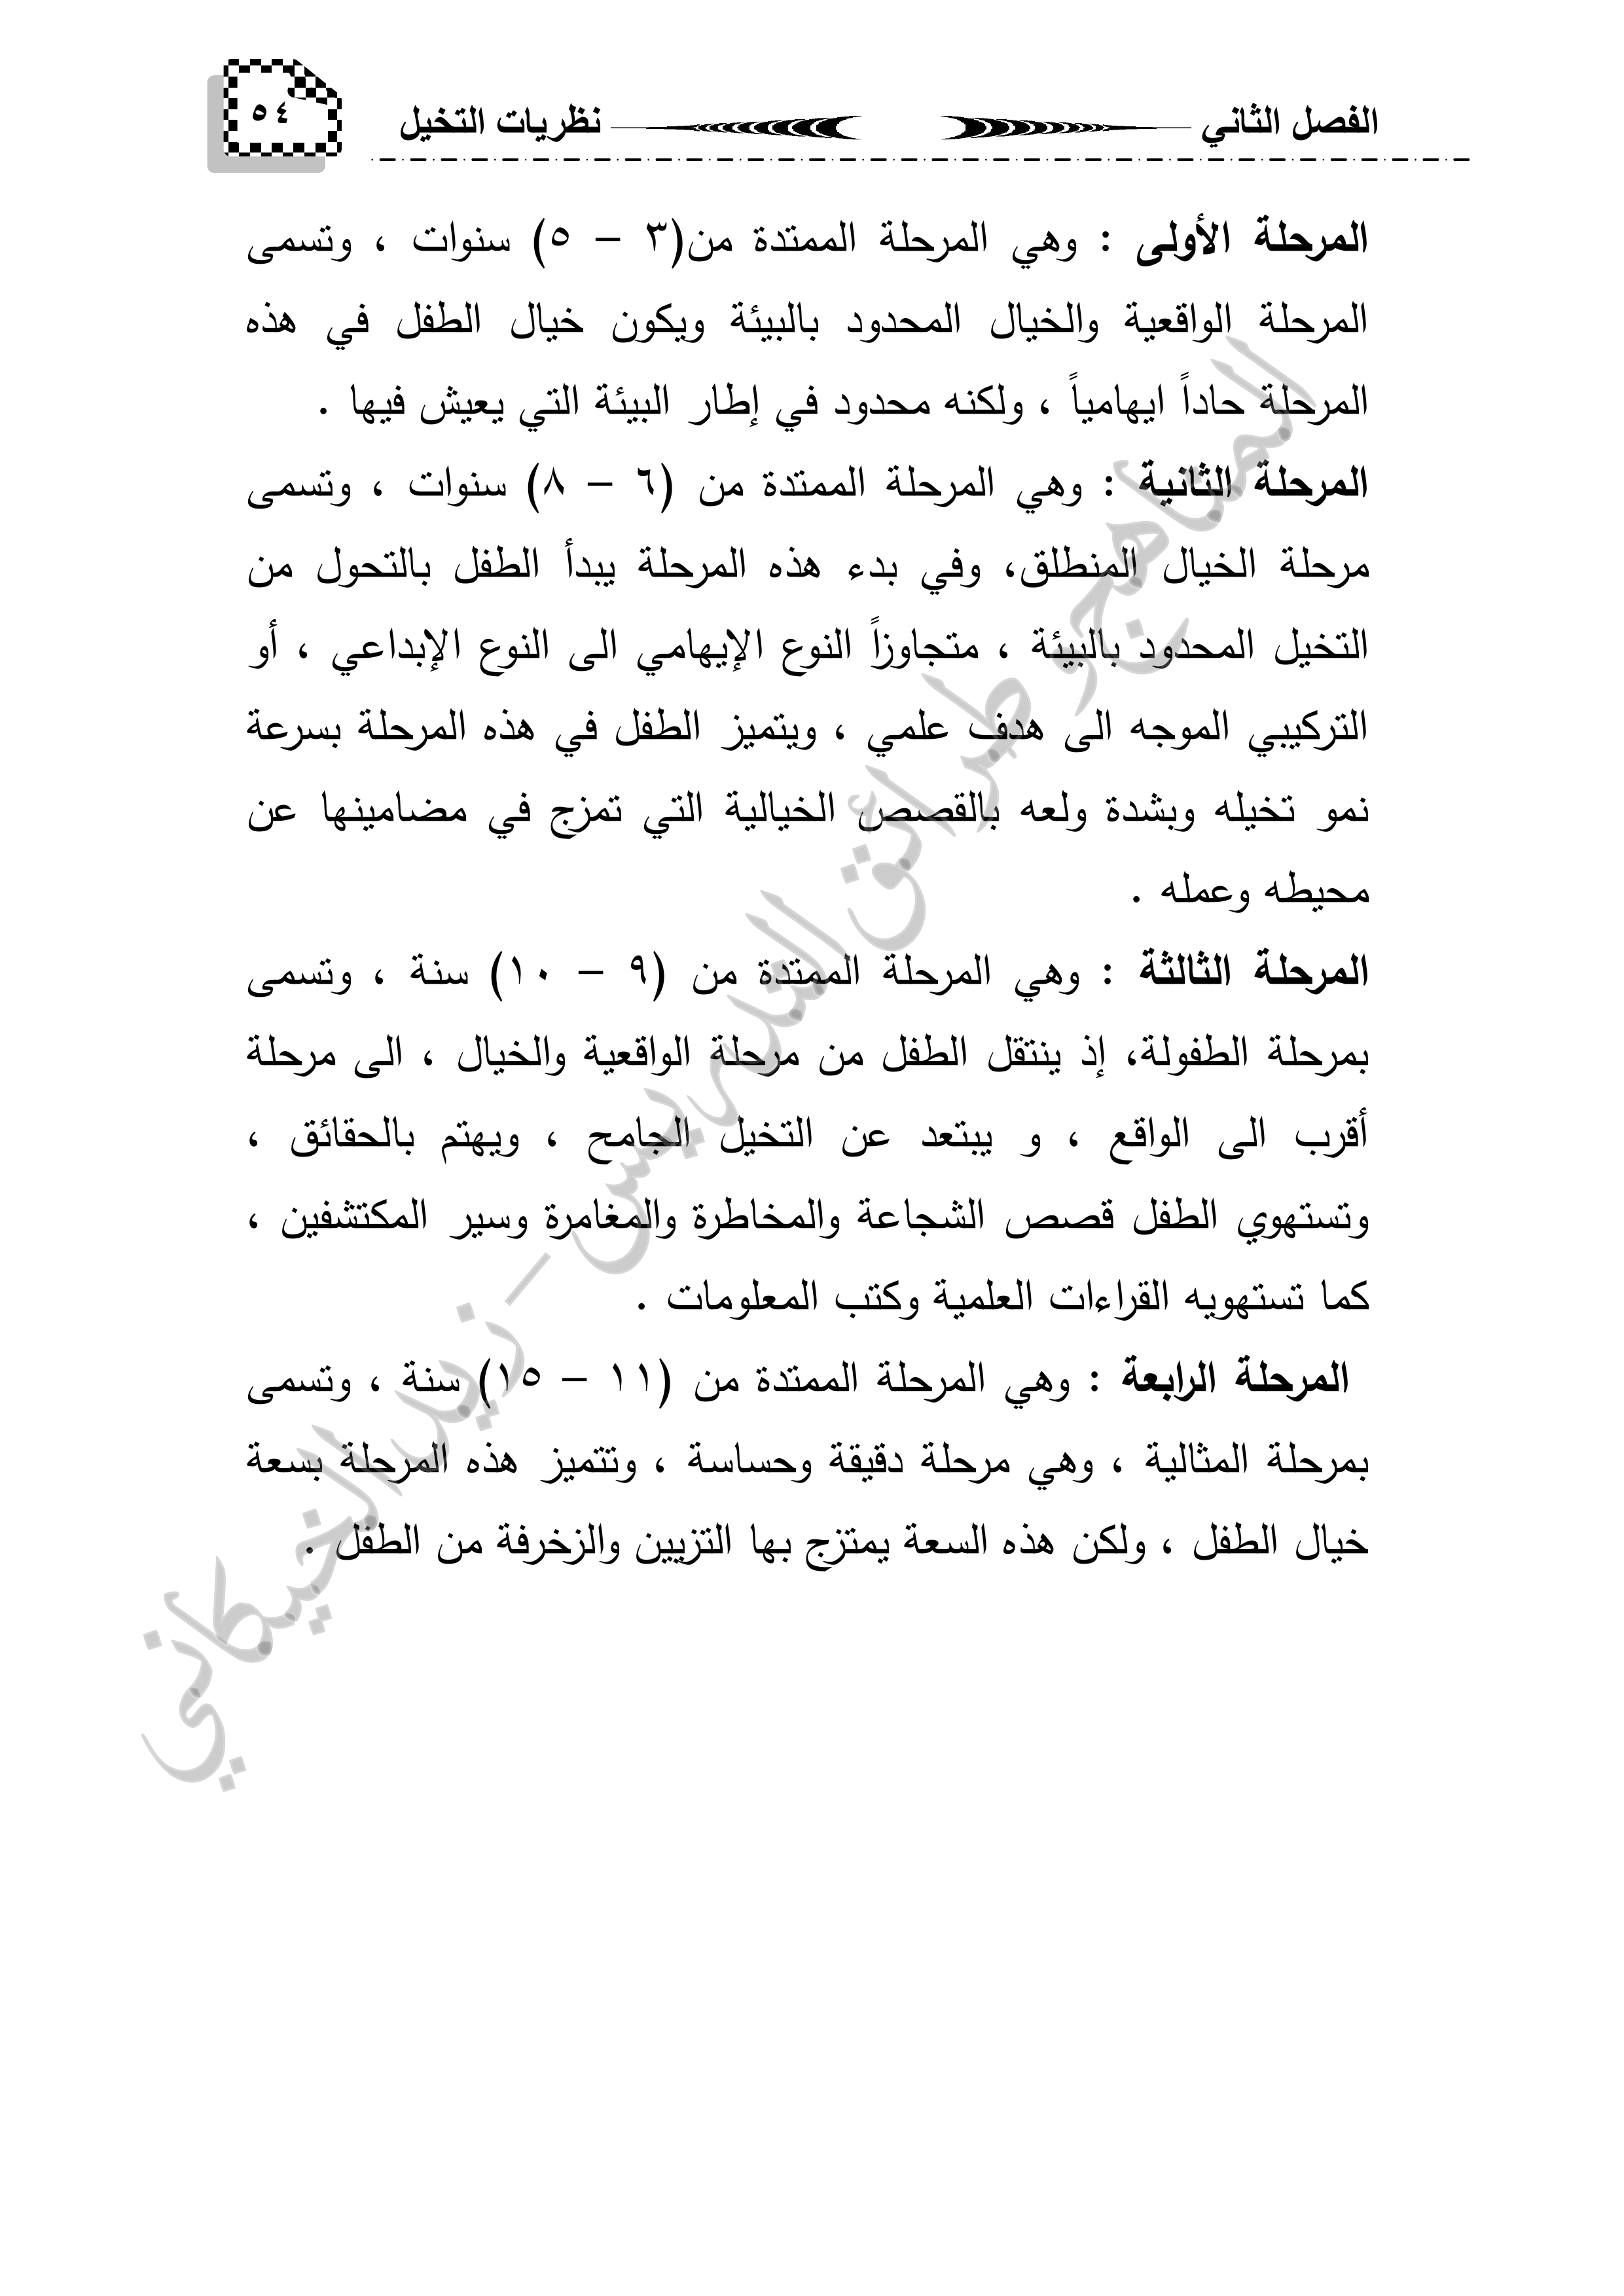 الفصل الثاني نظريات التخيل ٥٤
المرحلة الأولى : وهي المرحلة الممتدة من(٣ – ٥) سنوات ، وتسمى
المرحلة الواقعية والخيال المحدود بالبيئة ويكون خيال الطفل في هذه
المرحلة حاداً ايهامياً ، ولكنه محدود في إطار البيئة التي يعيش فيها .
المرحلة الثانية : وهي المرحلة الممتدة من (٦ – ٨) سنوات ، وتسمى
مرحلة الخيال المنطلق، وفي بدء هذه المرحلة يبدأ الطفل بالتحول من
التخيل المحدود بالبيئة ، متجاوزاً النوع الإيهامي الى النوع الإبداعي ، أو
التركيبي الموجه الى هدف علمي ، ويتميز الطفل في هذه المرحلة بسرعة
نمو تخيله وبشدة ولعه بالقصص الخيالية التي تمزج في مضامينها عن
محيطه وعمله .
المرحلة الثالثة : وهي المرحلة الممتدة من (٩ – ١٠) سنة ، وتسمى
بمرحلة الطفولة، إذ ينتقل الطفل من مرحلة الواقعية والخيال ، الى مرحلة
أقرب الى الواقع ، و يبتعد عن التخيل الجامح ، ويهتم بالحقائق ،
وتستهوي الطفل قصص الشجاعة والمخاطرة والمغامرة وسير المكتشفين ،
كما تستهويه القراءات العلمية وكتب المعلومات .
المرحلة الرابعة : وهي المرحلة الممتدة من (١١ – ١٥) سنة ، وتسمى
بمرحلة المثالية ، وهي مرحلة دقيقة وحساسة ، وتتميز هذه المرحلة بسعة
خيال الطفل ، ولكن هذه السعة يمتزج بها التزيين والزخرفة من الطفل .
المناهج وطرائق التدريس – زيد الخيكاني